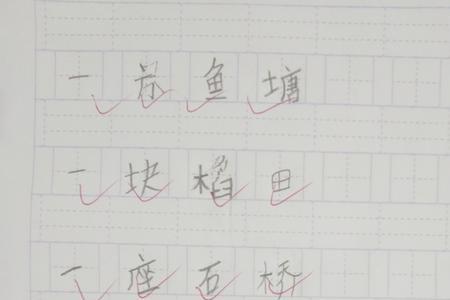 一鱼塘
一块稻田
一座石桥